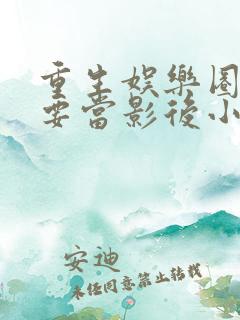 重生娛樂圈
要當影後小
安迪
未經同意禁止轉載